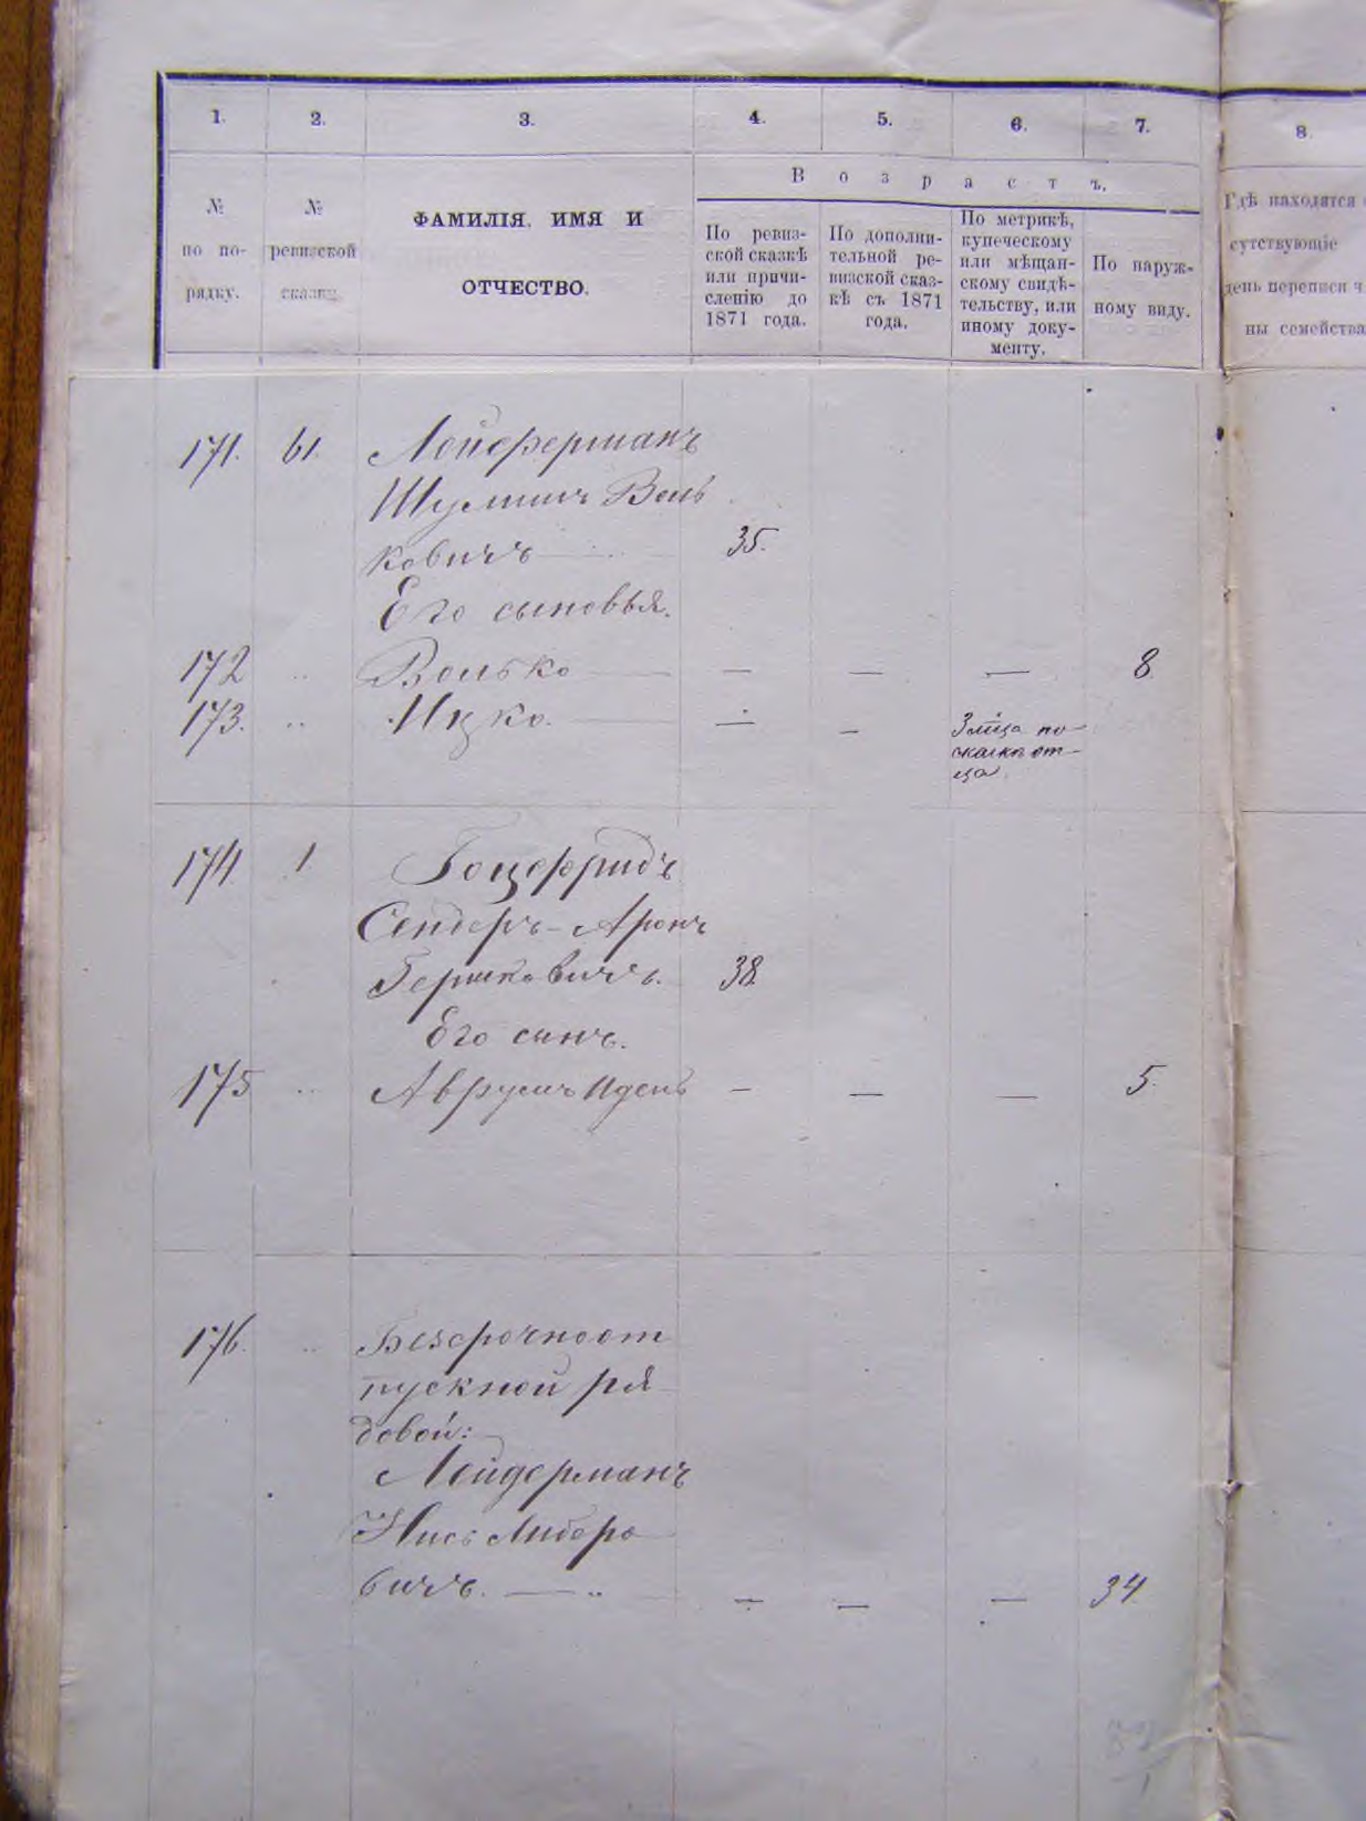 1. 2. 3. 4. 5. 6. 7. 8.
Возрастъ.
№ по порядку.
№ ревизской сказки.
ФАМИЛІЯ, ИМЯ И
ОТЧЕСТВО.
По ревиз-
ской сказкѣ
или причи-
сленію до
1871 года.
По дополни-
тельной ре-
визской сказ-
кѣ съ 1871
года.
По метрикѣ,
купеческому
или мѣщан-
скому свидѣ-
тельству, или
иному доку-
менту.
По наруж-
ному виду.
Гдѣ находятся
сутствующіе
день переписи ч
ны семейства
171. 61. Лойферманъ
Шулимъ Воль
ковичъ 35.
Его сыновья.
172 Волько — — — 8
173. Ицко. — —
по
сказкѣ от-
ца
174 1 Гоцфридъ
Сендеръ-Аронъ
Гершковичъ. 38.
Его сынъ.
175 Аврумъ Идель — — — 5.
176. Безсрочноот
пускной ря
довой:
Лейдерманъ
Нись Лейбо
вичъ. — — — — 34